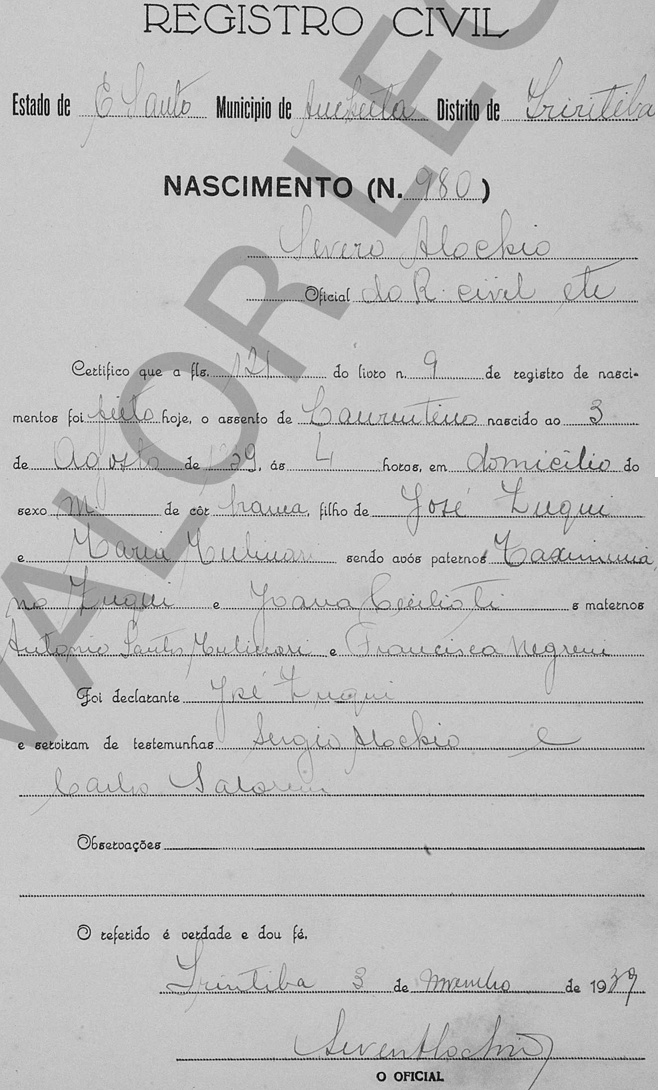 REGISTRO CIVIL
Estado de E Santo Municipio de Anchieta Distrito de Iriritiba
NASCIMENTO (N. 980)
Severo Alochio
Oficial do R. civil etc
Certifico que a fls. 121 do livro n. 9 de registro de nasci-
mentos foi feito hoje, o assento de Laurentino nascido ao 3
de Agosto de 1929, ás 4 horas, em domicilio do
sexo M. de côr branca, filho de José Zuqui
e Maria Mulinari sendo avós paternos Maximia
no Zuqui e Joana Cecilioti s maternos
Antonio Santo Mulinari e Francisca Negreni
Foi declarante José Zuqui
e serviram de testemunhas Sergio Alochio e
Carlos
Observações
O referido é verdade e dou fé.
Iriritiba 3 de de 1939
Severo Alochio
O OFICIAL
VALOR LEG